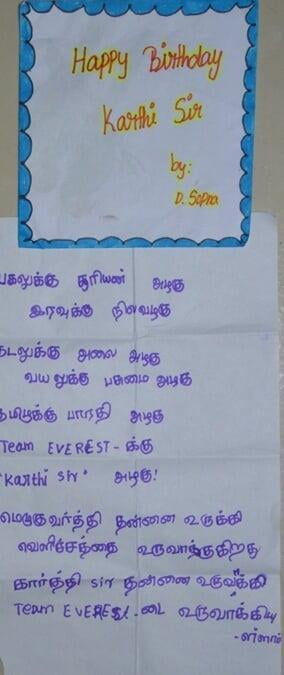 Happy Birthday
Karthi Sir
by:
D. Sapna
பகலுக்கு சூரியன் அழகு
இரவுக்கு நிலவழகு
கடலுக்கு அலை அழகு
வயலுக்கு பசுமை அழகு
தமிழுக்கு பாரதி அழகு
Team EVEREST-க்கு
"Karthi Sir" அழகு!
மெழுகுவர்த்தி தன்னை உருக்கி
வெளிச்சத்தை உருவாக்குகிறது
கார்த்தி sir தன்னை உருக்கி
Team EVEREST-டை உருவாக்கிய